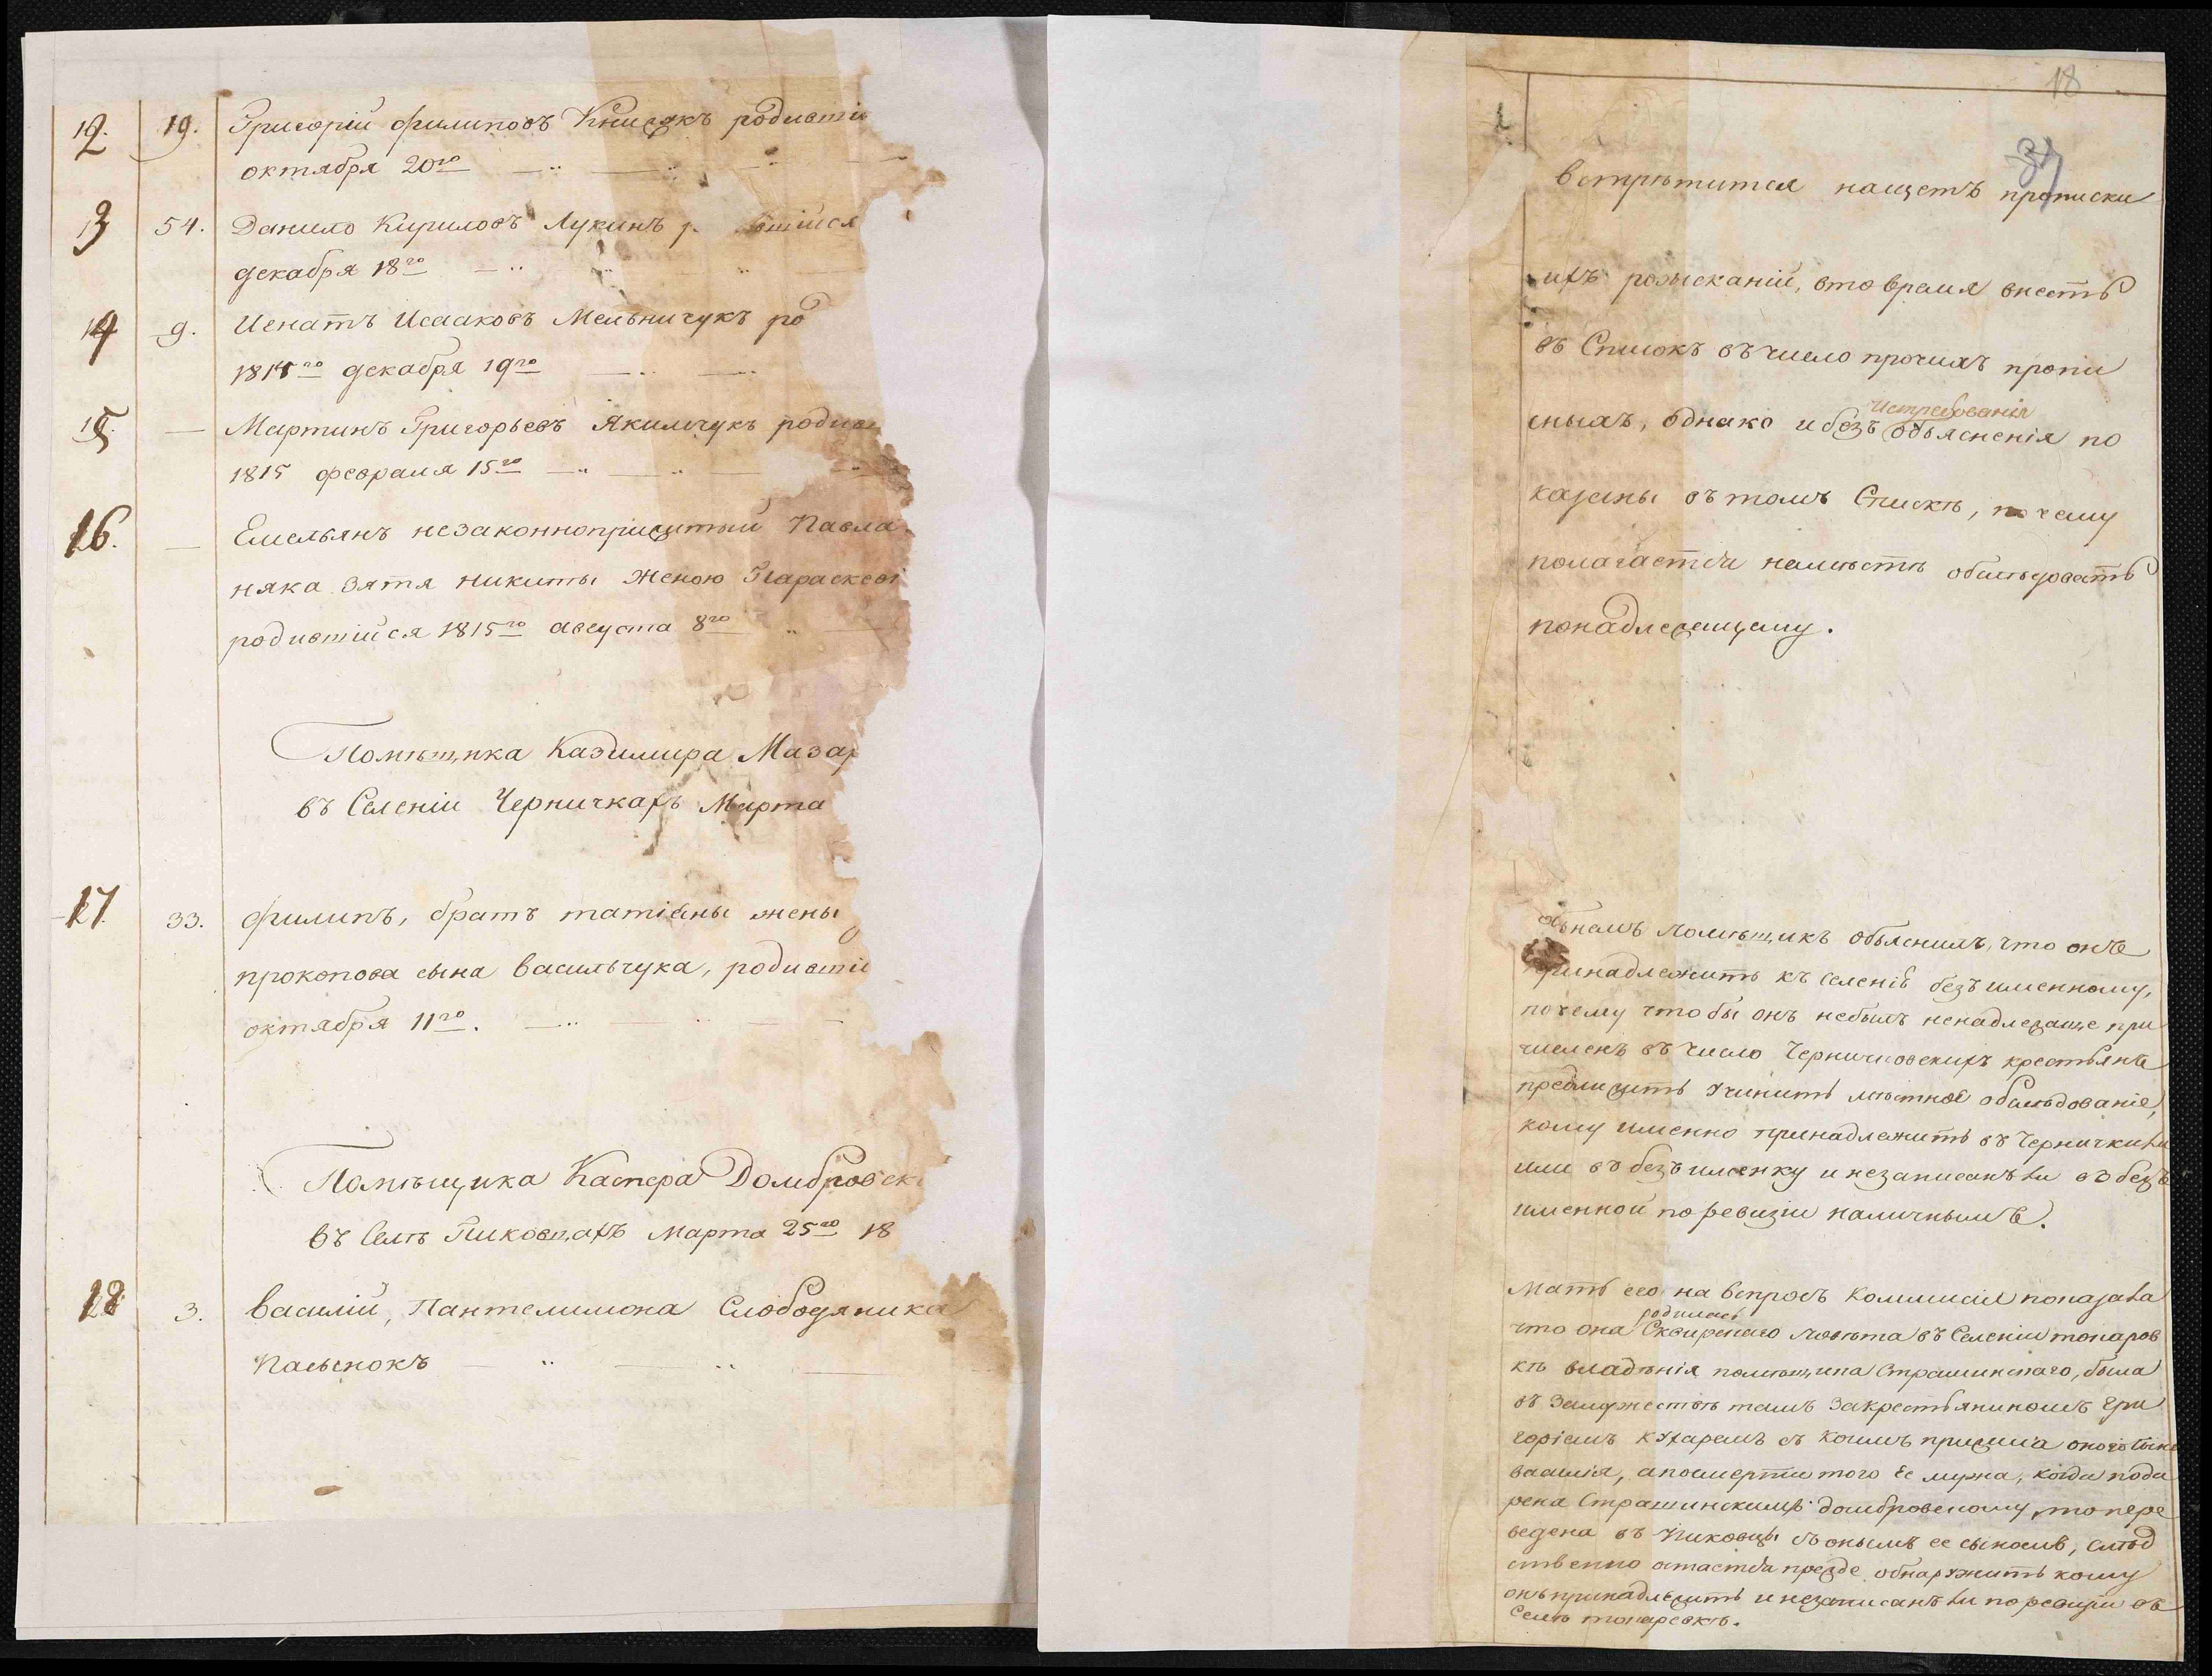 12. 19. Григорій Филиповъ Книжакъ родивші
октября 20го
13 54. Данило Кириловъ Лукинъ р вшійся
декабря 18го
14 9. Игнатъ Исааковъ Мельничукъ ро
1814го декабря 19го
15. — Мартинъ Григорьевъ Якимчукъ родив
1815 февраля 15го
16. — Емельянъ незаконноприжитый Павла
няка зятя никиты женою Параскеві
родившійся 1815го августа 8го
Помѣщика Казимира Мазар
въ Селеніи Черничкахъ Марта
17 33. Филипъ, братъ татіяны жены
прокопова сына васильчука, родившій
октября 11го.
Помѣщика Каспера Домбровск
въ Селѣ Пиковцахъ Марта 25го 18
18 3. василій, Пантелимона Слободяника
Пасынокъ
18
встрѣтится нащетъ прописки
ихъ розысканій, вто время внесть
въ Списокъ въ число прочихъ пропи
сныхъ, однако и безъ объясненія по
Истребованія
казаны въ томъ Спискѣ, по чему
полагается намѣстѣ обслѣдовать
понадлежащему.
Помѣщикъ объяснилъ, что онъ
принадлежитъ къ селенію безъименному,
почему чтобы онъ небылъ ненадлежаще при
численъ въ число Черничковскихъ крестьянъ
предлежитъ учинить мѣстное обслѣдованіе,
кому именно принадлежитъ въ Чернички ли
или въ безъименку и незаписанъ ли въ безъ
именной поревизіи наличнымъ.
Мать его на вопросъ Коммисіи показала
родилась
что она Сквирскаго повѣта въ Селеніи топоров
кѣ владѣнія помѣщика Страшинскаго, была
въ замужествѣ тамъ закрестьяниномъ гри
горіемъ кухаремъ съ коимъ прижила оного сына
василія, апосмерти того ее мужа, когда пода
рена Страшинскимъ домбровскому, то пере
ведена въ Пиковцы съ онымъ ее сыномъ, слѣд
ственно остается прежде обнаружить кому
онъ принадлежитъ и незаписанъ ли поревизіи въ
Селѣ топоровкѣ.